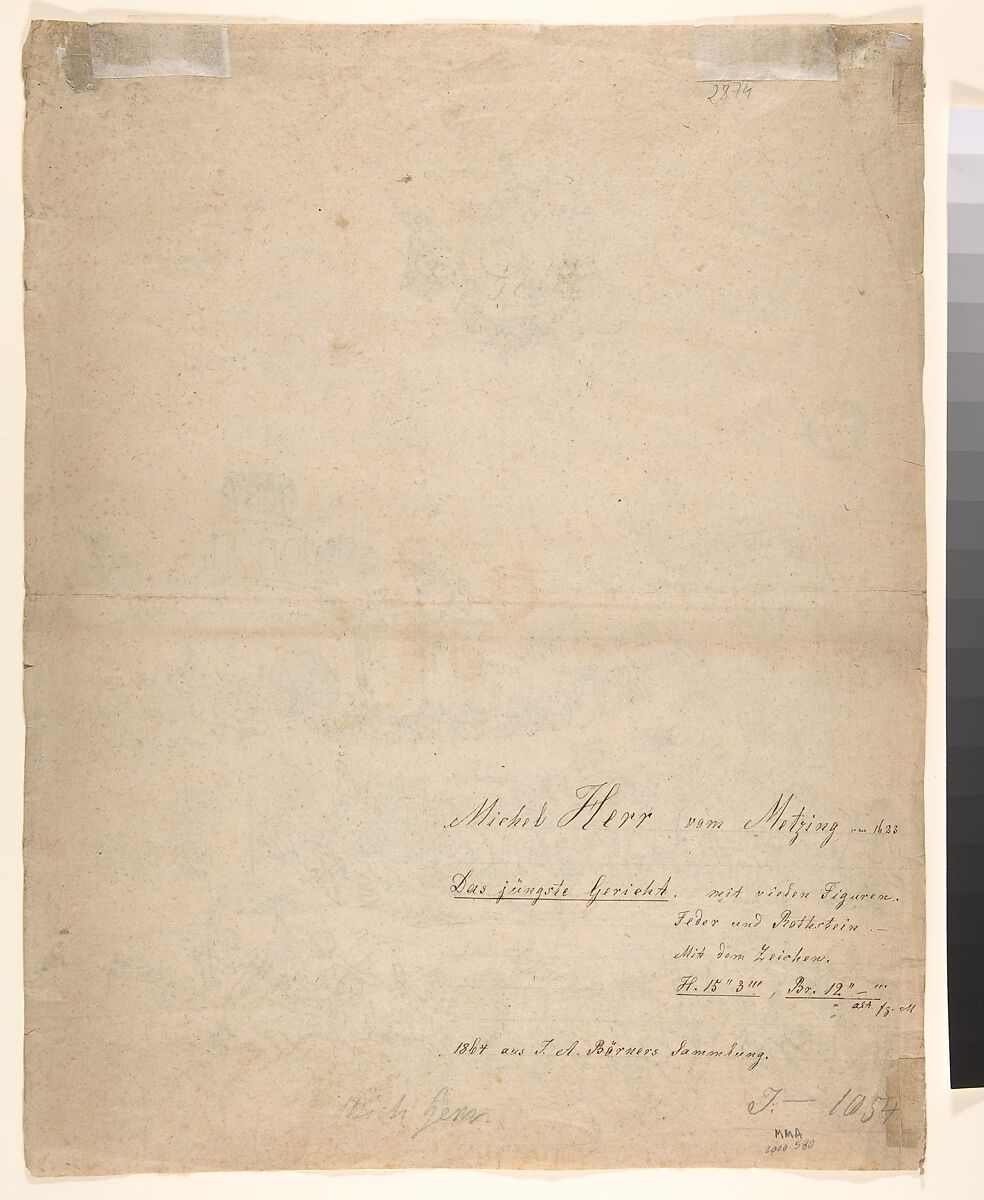 2874
Michel Herr vom Metzing um 1623
Das jüngste Gericht. mit vielen Figuren.
Feder und Rothstein. —
Mit dem Zeichen.
H. 15" 3''', Br. 12" — '''
alt. fz. M
1864 aus J. A. Börners Sammlung.
Mich Herr
J. — 1054
MMA
2000.580